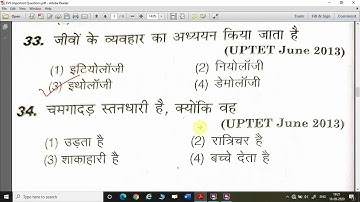 EVS Important Questions.pdf - Adobe Reader
33. जीवों के व्यवहार का अध्ययन किया जाता है
(UPTET June 2013)
(1) इटियोलॉजी (2) नियोलॉजी
(3) इथोलॉजी (4) डेमोलॉजी
34. चमगादड़ स्तनधारी है, क्योंकि वह
(UPTET June 2013)
(1) उड़ता है (2) रात्रिचर है
(3) शाकाहारी है (4) बच्चे देता है